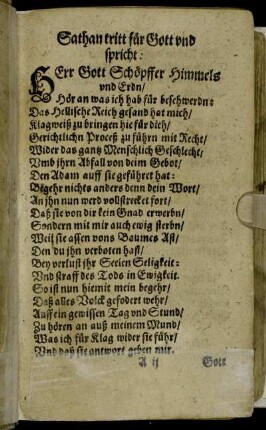 Sathan tritt für Gott vnd
spricht:
HErr Gott Schöpffer Himmels
vnd Erdn/
Hör an was ich hab für beschwerdn:
Das Hellische Reich gesand hat mich/
Klagweiß zu bringen hie für dich/
Gerichtlichn Proceß zu führn mit Recht/
Wider das gantz Menschlich Geschlecht/
Vmb jhrn Abfall von deim Gebot/
Den Adam auff sie geführet hat:
Begehr nichts anders denn dein Wort/
An jhn nun werd vollstrecket fort/
Daß sie von dir kein Gnad erwerbn/
Sondern mit mir auch ewig sterbn/
Weil sie assen vons Baumes Ast/
Den du jhn verboten hast/
Bey verlust jhr Seelen Seligkeit:
Vnd straff des Tods in Ewigkeit.
So ist nun hiemit mein begehr/
Daß alles Volck gefodert wehr/
Auff ein gewissen Tag vnd Stund/
Zu hören an auß meinem Mund/
Was ich für Klag wider sie führ/
Vnd daß sie antwort geben nur.
A ij Gott